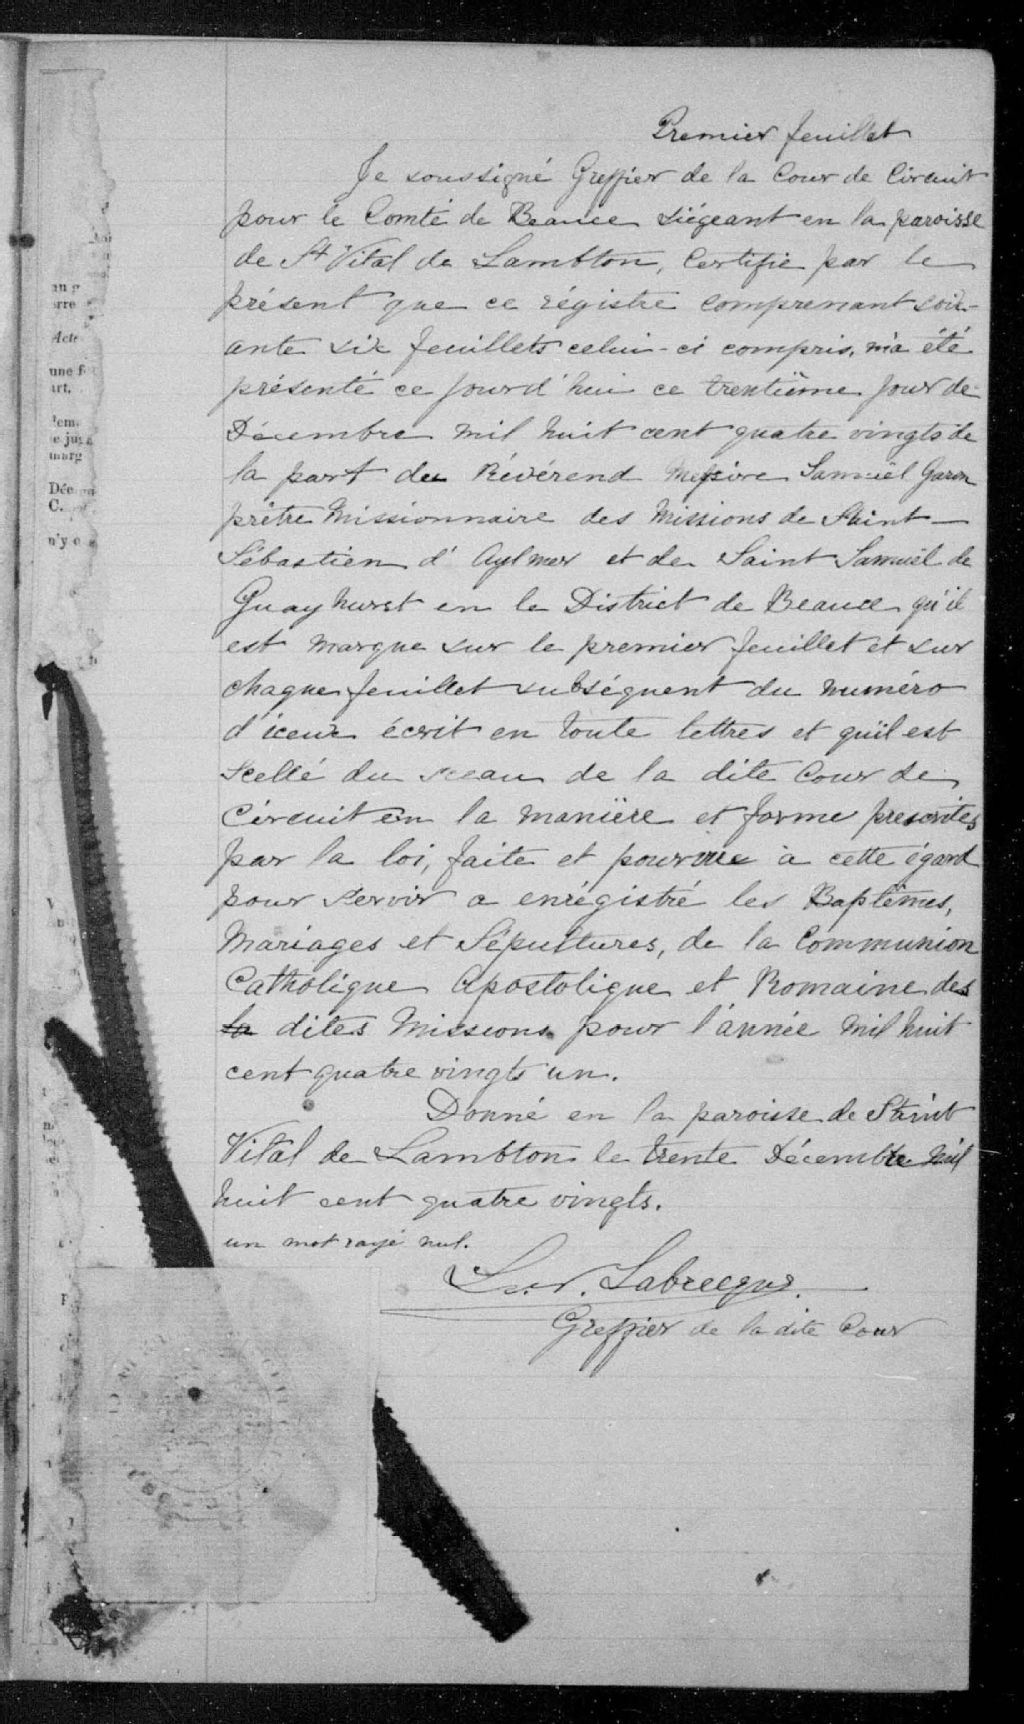 Premier feuillet
Je soussigné Greffier de la Cour de Circuit
pour le Comté de Beauce siégeant en la paroisse
de St Vital de Lambton, Certifie par le
présent que ce régistre comprenant soix-
ante six feuillets celui-ci compris, m'a été
présenté ce jourd'hui ce trentième jour de
Décembre mil huit cent quatre vingts de
la part du Révérend Messire Samuël Garon
prêtre Missionnaire des Missions de Saint
Sébastien d'Aylmer et de Saint Samuël de
Guayhurst en le District de Beauce qu'il
est marque sur le premier feuillet et sur
chaque feuillet subséquent du numéro
d'iceux écrit en toute lettres et qu'il est
scellé du sceau de la dite Cour de
Circuit en la manière et forme prescrites
par la loi, faite et pourvue à cette égard
pour servir a enrégistré les Baptêmes,
Mariages et Sépultures, de la Communion
Catholique Apostolique et Romaine des
la dites Missions pour l'année mil huit
cent quatre vingts un.
Donné en la paroisse de Saint
Vital de Lambton le trente Décembre mil
huit cent quatre vingts.
un mot rayé nul.
Labrecque
Greffier de la dite Cour
Acte
une f
art.
marg
Dée
C.
n'y